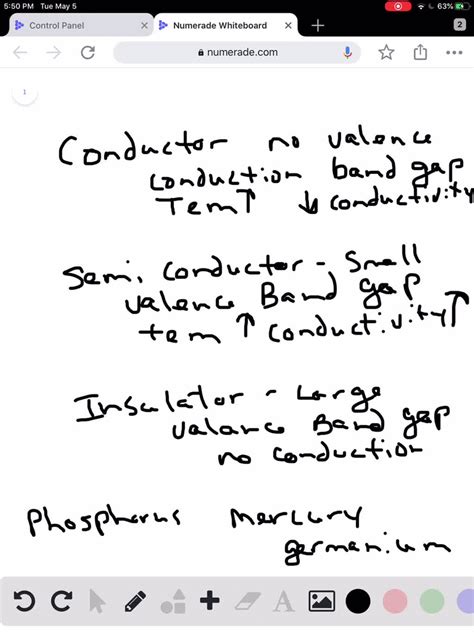 5:50 PM Tue May 5 63%
Control Panel × Numerade Whiteboard × + 2
numerade.com
1
Conductor no valence
conduction band gap
Tem↑ ↓ conductivity
Semi conductor - Small
valence Band gap
tem ↑ conductivity↑
Insulator - Large
valance Band gap
no conduction
Phosphorus Mercury
germanium
A